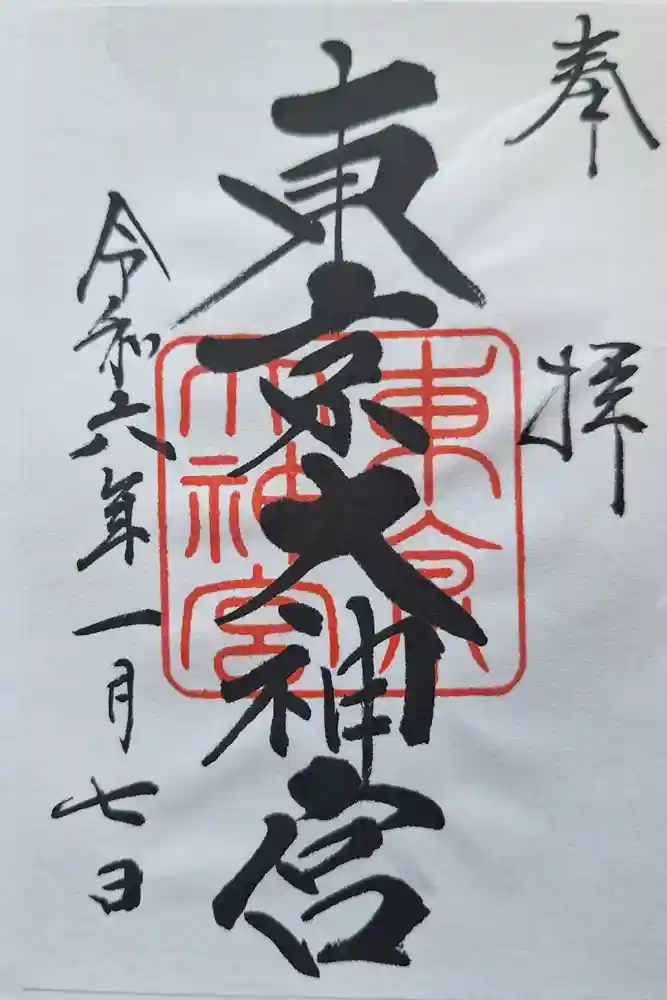 奉拝
東京大神宮
東京
大神宮
令和六年一月七日